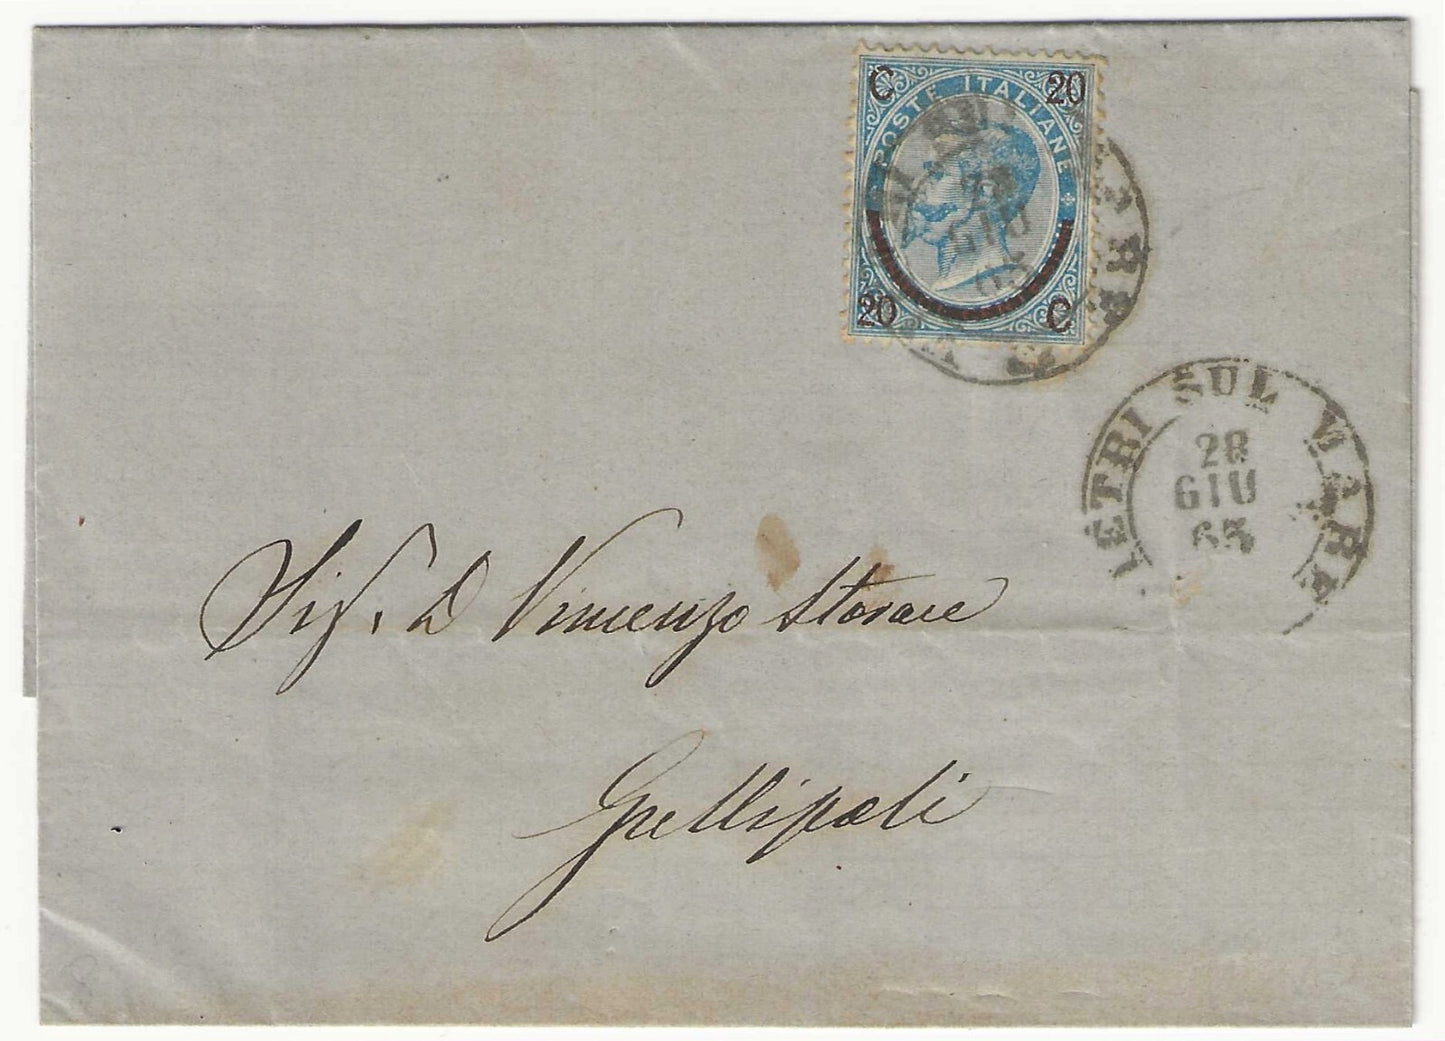 C 20
POSTE ITALIANE
20 C
28
GIU
65
VIETRI SUL MARE
28
GIU
65
Sig. D Vincenzo Storace
Gallipoli